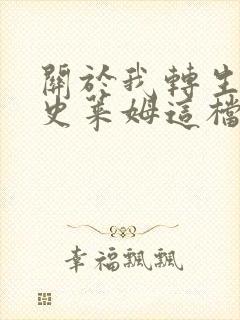 關於我轉生
史萊姆這檔
幸福飄飄